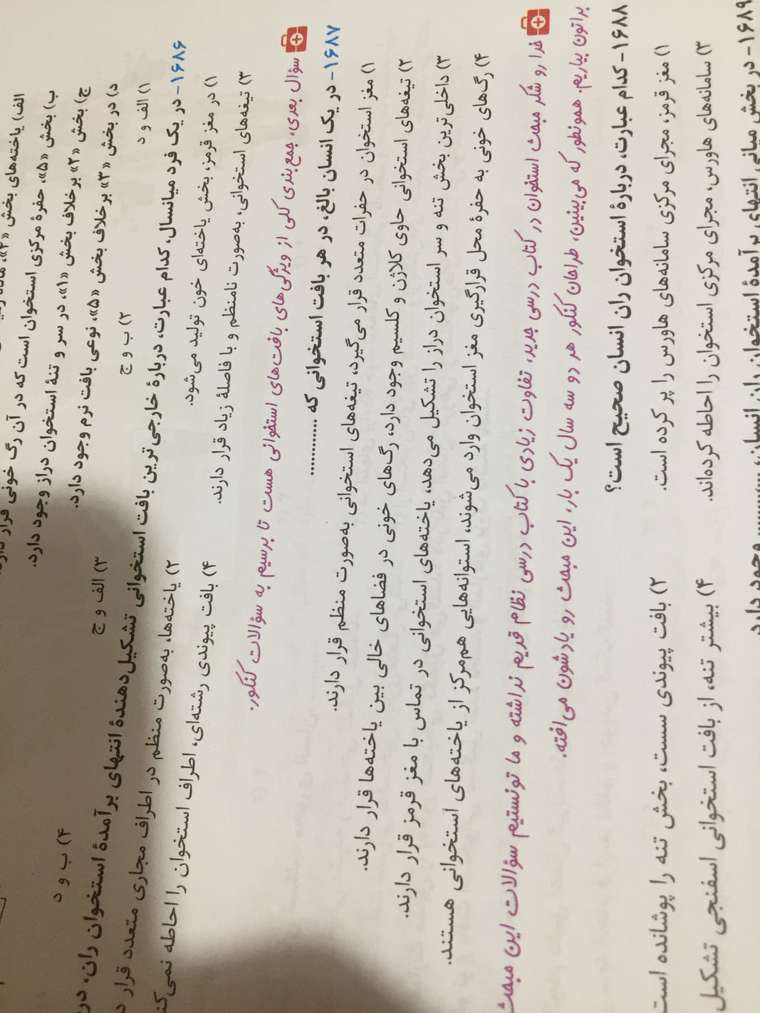 الف) یاخته‌های بخش «۴»، ماده
ب) بخش «۵»، حفرهٔ مرکزی استخوان است که در آن رگ خونی قرار دارد.
ج) بخش «۲» برخلاف بخش «۱»، در سر و تنهٔ استخوان دراز وجود دارد.
د) در بخش «۳» برخلاف بخش «۵»، نوعی بافت نرم وجود دارد.
۱) الف و د ۲) ب و ج ۳) الف و ج ۴) ب و د
۱۶۸۶- در یک فرد میانسال، کدام عبارت، دربارهٔ خارجی‌ترین بافت استخوانی تشکیل‌دهندهٔ انتهای برآمدهٔ استخوان ران، در
۱) در مغز قرمز، بخش یاخته‌ای خون تولید می‌شود. ۲) یاخته‌ها، به‌صورت منظم در اطراف مجاری متعدد قرار
۳) تیغه‌های استخوانی، به‌صورت نامنظم و با فاصلهٔ زیاد قرار دارند. ۴) بافت پیوندی رشته‌ای، اطراف استخوان را احاطه
سؤال بعدی، جمع‌بندی کلی از ویژگی‌های بافت‌های استخوانی هست تا برسیم به سؤالات کنکور.
۱۶۸۷- در یک انسان بالغ، در هر بافت استخوانی که ............
۱) مغز استخوان در حفرات متعدد قرار می‌گیرد، تیغه‌های استخوانی به‌صورت منظم قرار دارند.
۲) تیغه‌های استخوانی حاوی کلاژن و کلسیم وجود دارد، رگ‌های خونی در فضاهای خالی بین یاخته‌ها قرار دارند.
۳) داخلی‌ترین بخش تنه و سر استخوان دراز را تشکیل می‌دهد، یاخته‌های استخوانی در تماس با مغز قرمز قرار دارند.
۴) رگ‌های خونی به حفرهٔ محل قرارگیری مغز استخوان وارد می‌شوند، استوانه‌هایی هم‌مرکز از یاخته‌های استخوانی هستند.
خدا رو شکر مبحث استخوان در کتاب درسی جدید، تفاوت زیادی با کتاب درسی نظام قدیم نداشته و ما تونستیم سؤالات این مبحث
براتون بیاریم. همونطور که می‌بینین، طراحان کنکور هر دو سه سال یک بار، این مبحث رو یادشون می‌افته.
۱۶۸۸- کدام عبارت، دربارهٔ استخوان ران انسان صحیح است؟
۱) مغز قرمز، مجرای مرکزی سامانه‌های هاورس را پر کرده است. ۲) بافت پیوندی سست، بخش تنه را پوشانده است
۳) سامانه‌های هاورس، مجرای مرکزی استخوان را احاطه کرده‌اند. ۴) بیشتر تنه، از بافت استخوانی اسفنجی تشکیل
۱۶۸۹- در بخش میانی انتهای برآمدهٔ استخوان ران انسان، ............ وجود دارد